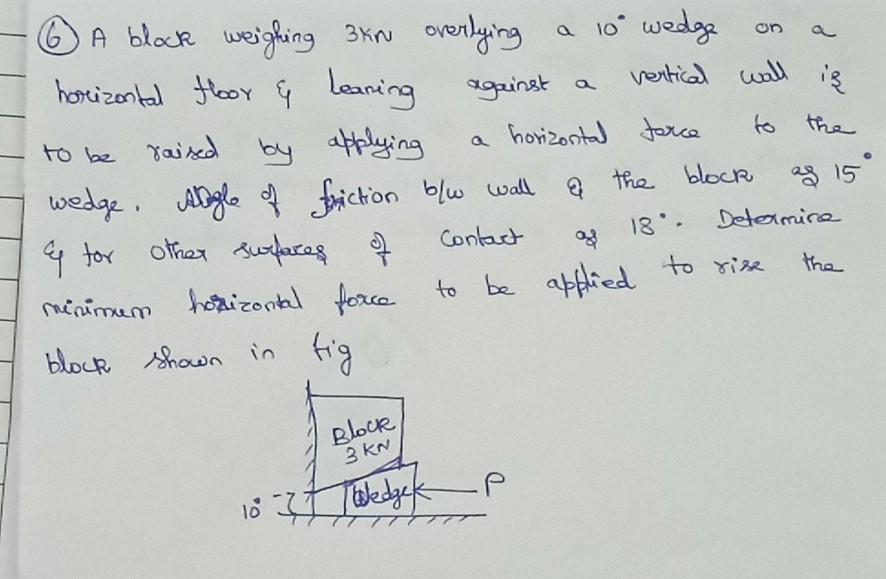 ⑥ A block weighing 3KN overlying a 10° wedge on a
horizontal floor & leaning against a vertical wall is
to be raised by applying a horizontal force to the
wedge. Angle of friction b/w wall & the block as 15°
& for other surfaces of contact as 18°. Determine
minimum horizontal force to be applied to rise the
block shown in fig
Block
3 KN
Wedge
P
10°